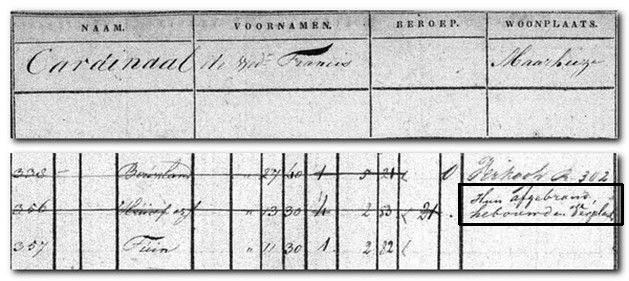 NAAM. VOORNAMEN. BEROEP. WOONPLAATS.
Cardinaal de wed. Francis Maarheeze
338 Bouwland " 27 40 1 5 21 0 Verkocht 302
356 " 13 30 4 2 53 21 Huis afgebrand,
gebouwde
357 Tuin " 11 30 1 2 82